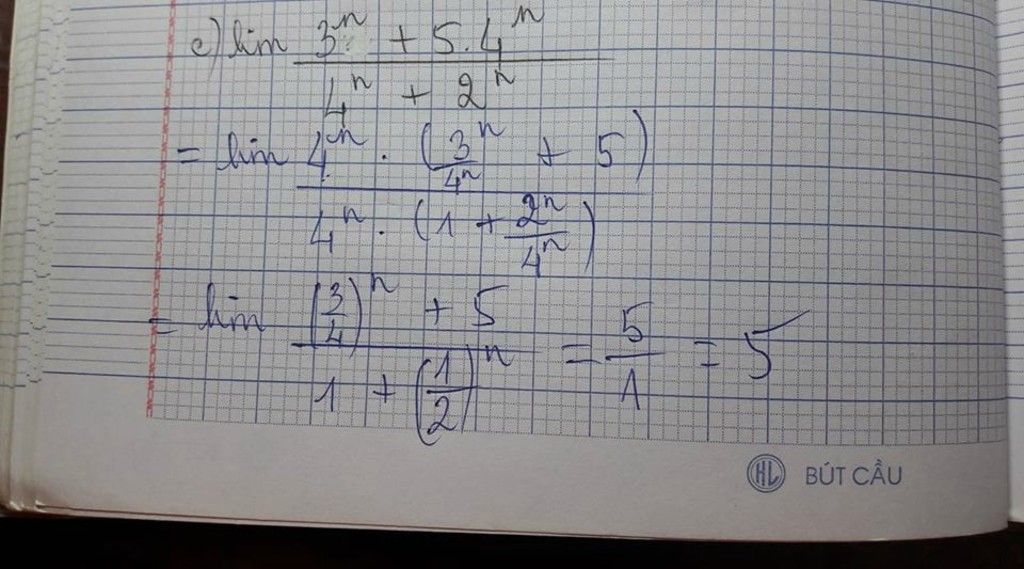 c) lim (3^n + 5.4^n)/(4^n + 2^n)
= lim (4^n . (3^n/4^n + 5))/(4^n . (1 + 2^n/4^n))
= lim ((3/4)^n + 5)/(1 + (1/2)^n) = 5/1 = 5
HL BÚT CẦU